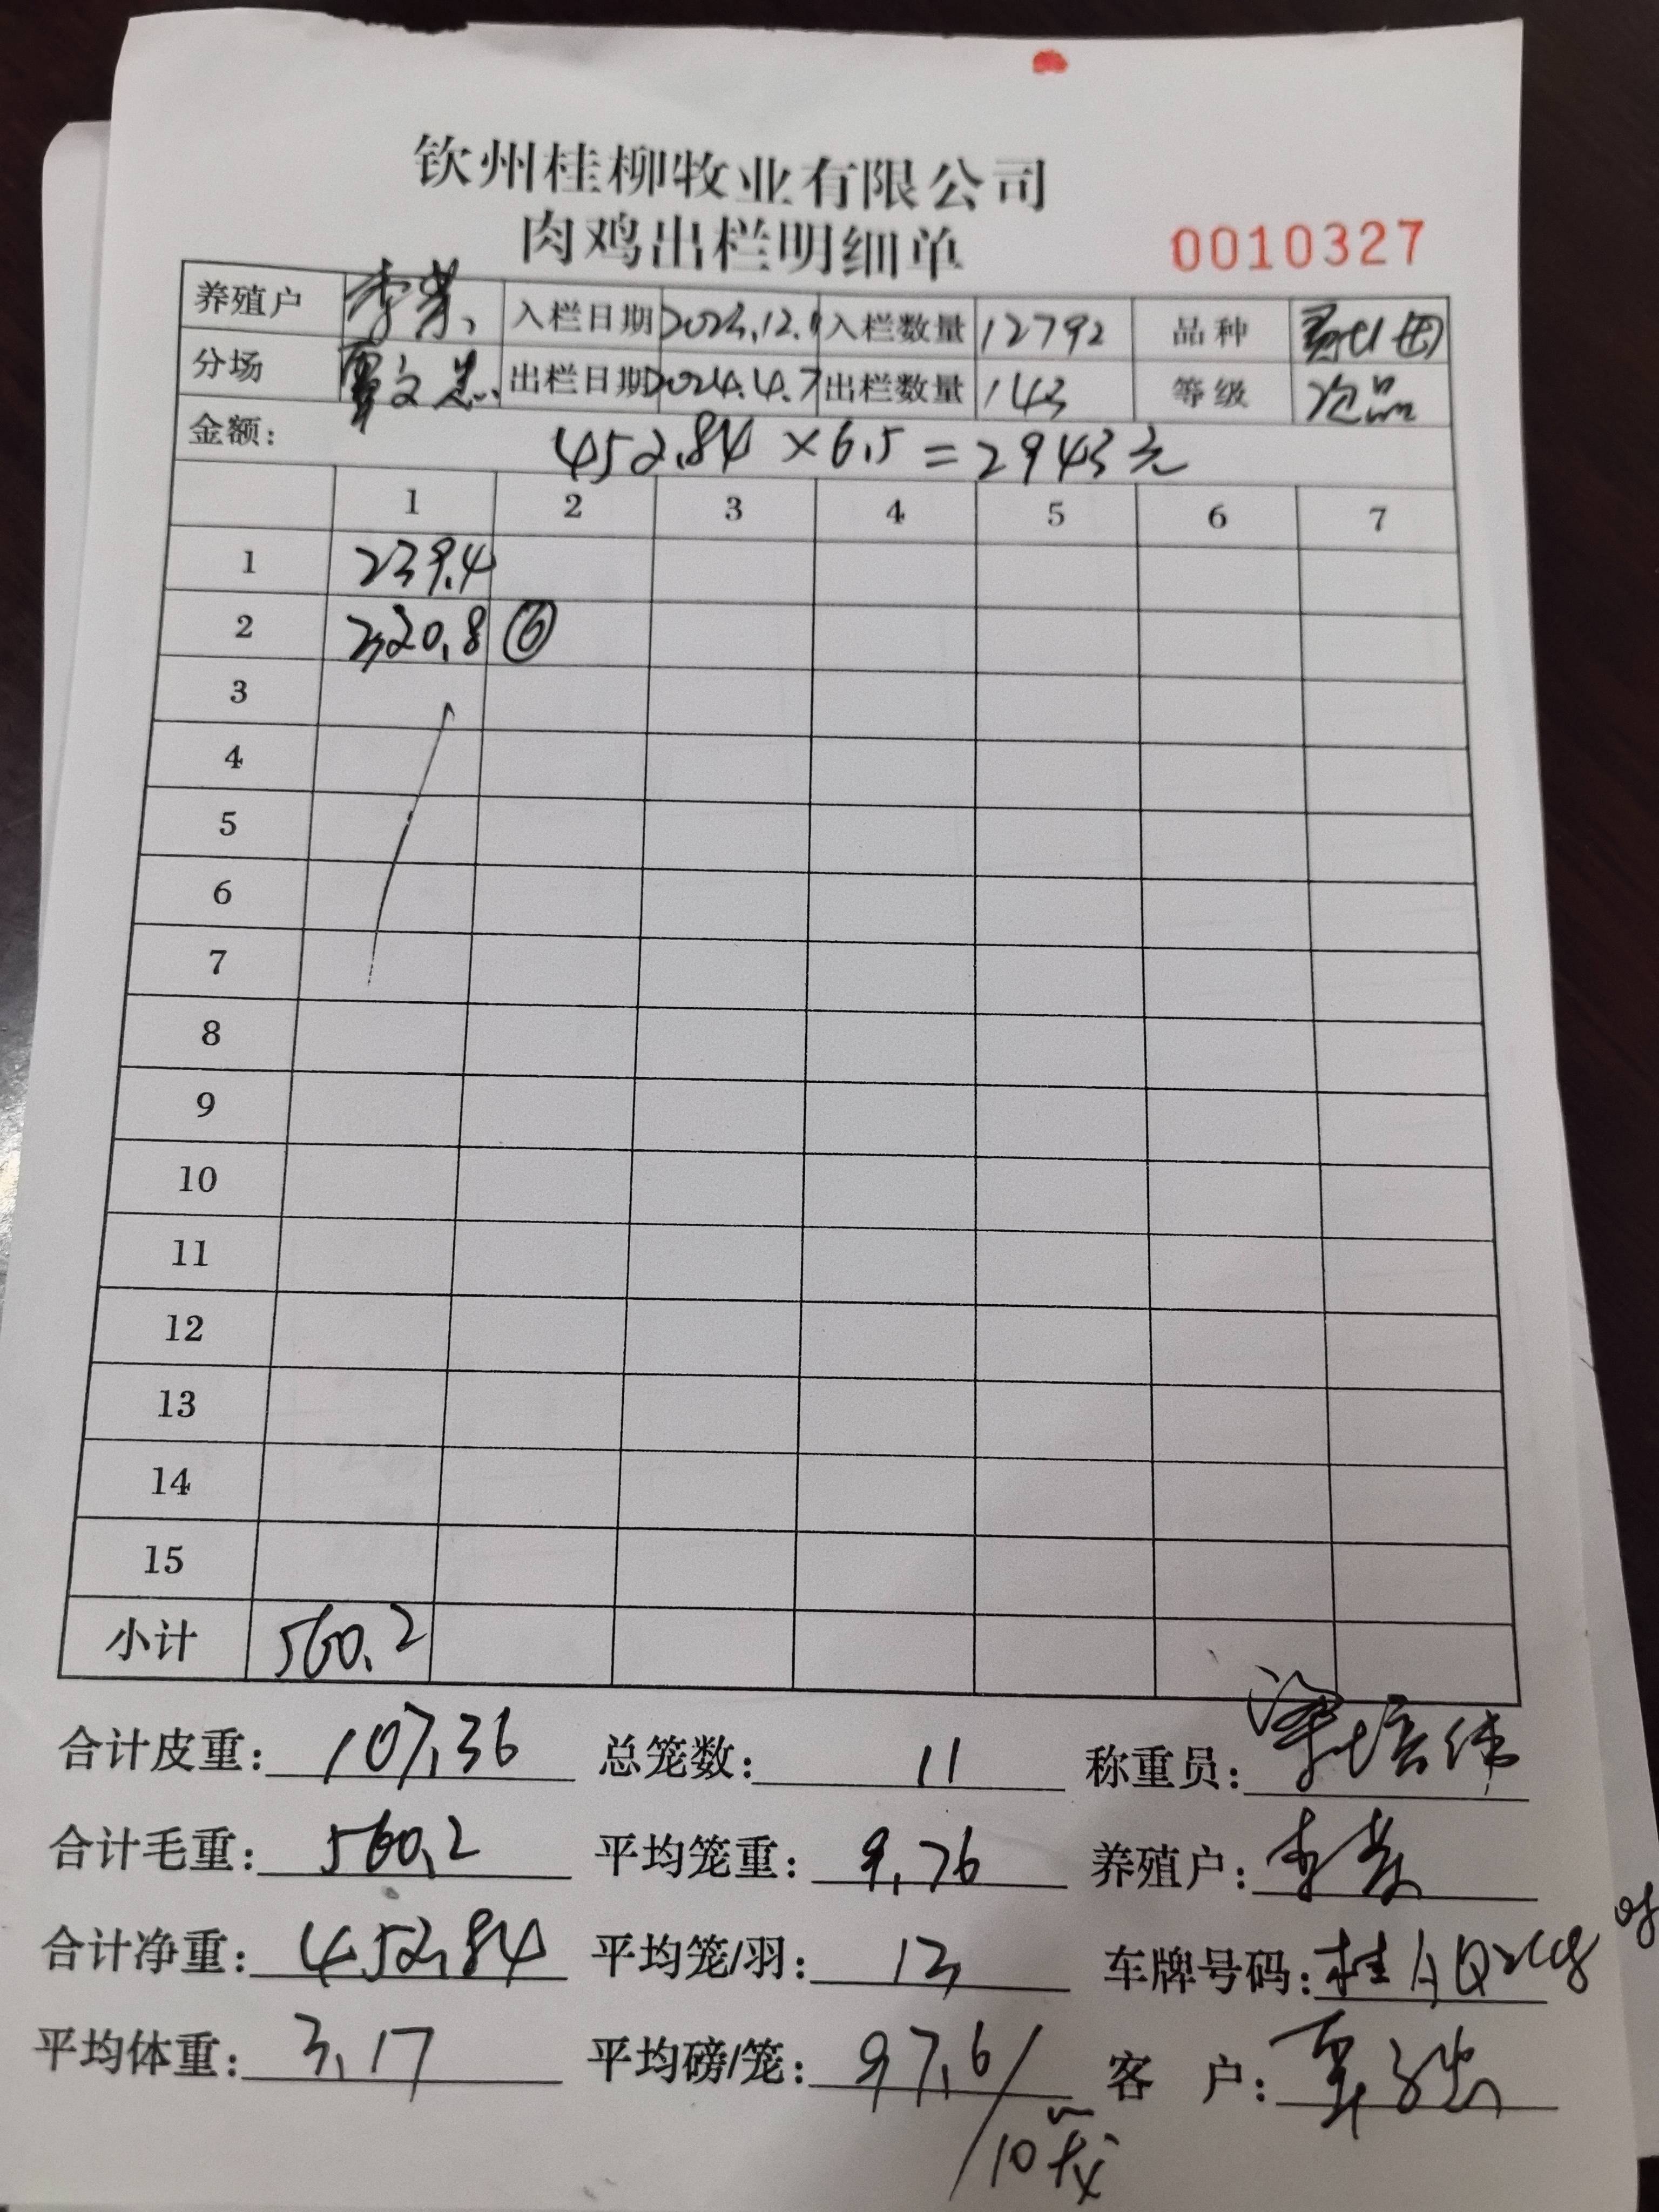 钦州桂柳牧业有限公司
肉鸡出栏明细单 0010327
养殖户 李 入栏日期 2023.12.11 入栏数量 12792 品种
分场 覃文忠 出栏日期 2024.4.7 出栏数量 143 等级 次品
金额: 452.84×6.5=2943元
1 2 3 4 5 6 7
1 239.4
2 320.8 ⑥
3
4
5
6
7
8
9
10
11
12
13
14
15
小计 560.2
合计皮重: 107.36 总笼数: 11 称重员: 培伟
合计毛重: 560.2 平均笼重: 9.76 养殖户: 李
合计净重: 452.84 平均笼/羽: 13 车牌号码: 桂AQ
平均体重: 3.17 平均磅/笼: 97.6/10 客 户: 覃